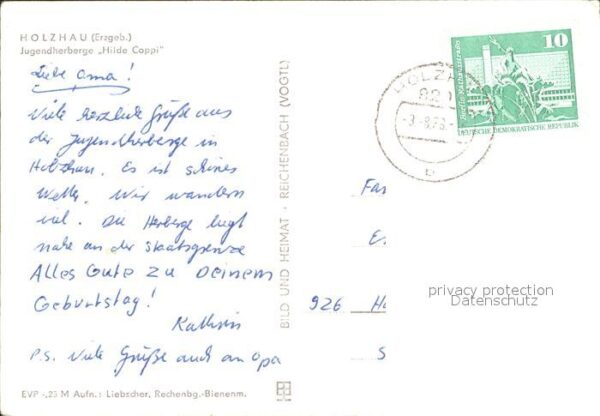 HOLZHAU (Erzgeb.)
Jugendherberge „Hilde Coppi"
Liebe Oma!
Viele herzliche Grüße aus
der Jugendherberge in
Holzhau. Es ist schönes
Wetter. Wir wandern
viel. Die Herberge liegt
nahe an der Staatsgrenze
Alles Gute zu Deinem
Geburtstag!
Kathrin
P.S. Viele Grüße auch an Opa
EVP -,25 M Aufn.: Liebscher, Rechenbg.-Bienenm.
BILD UND HEIMAT · REICHENBACH (VOGTL)
HOLZHAU
10
DEUTSCHE DEMOKRATISCHE REPUBLIK
Fa
E
926 H
S
privacy protection
Datenschutz